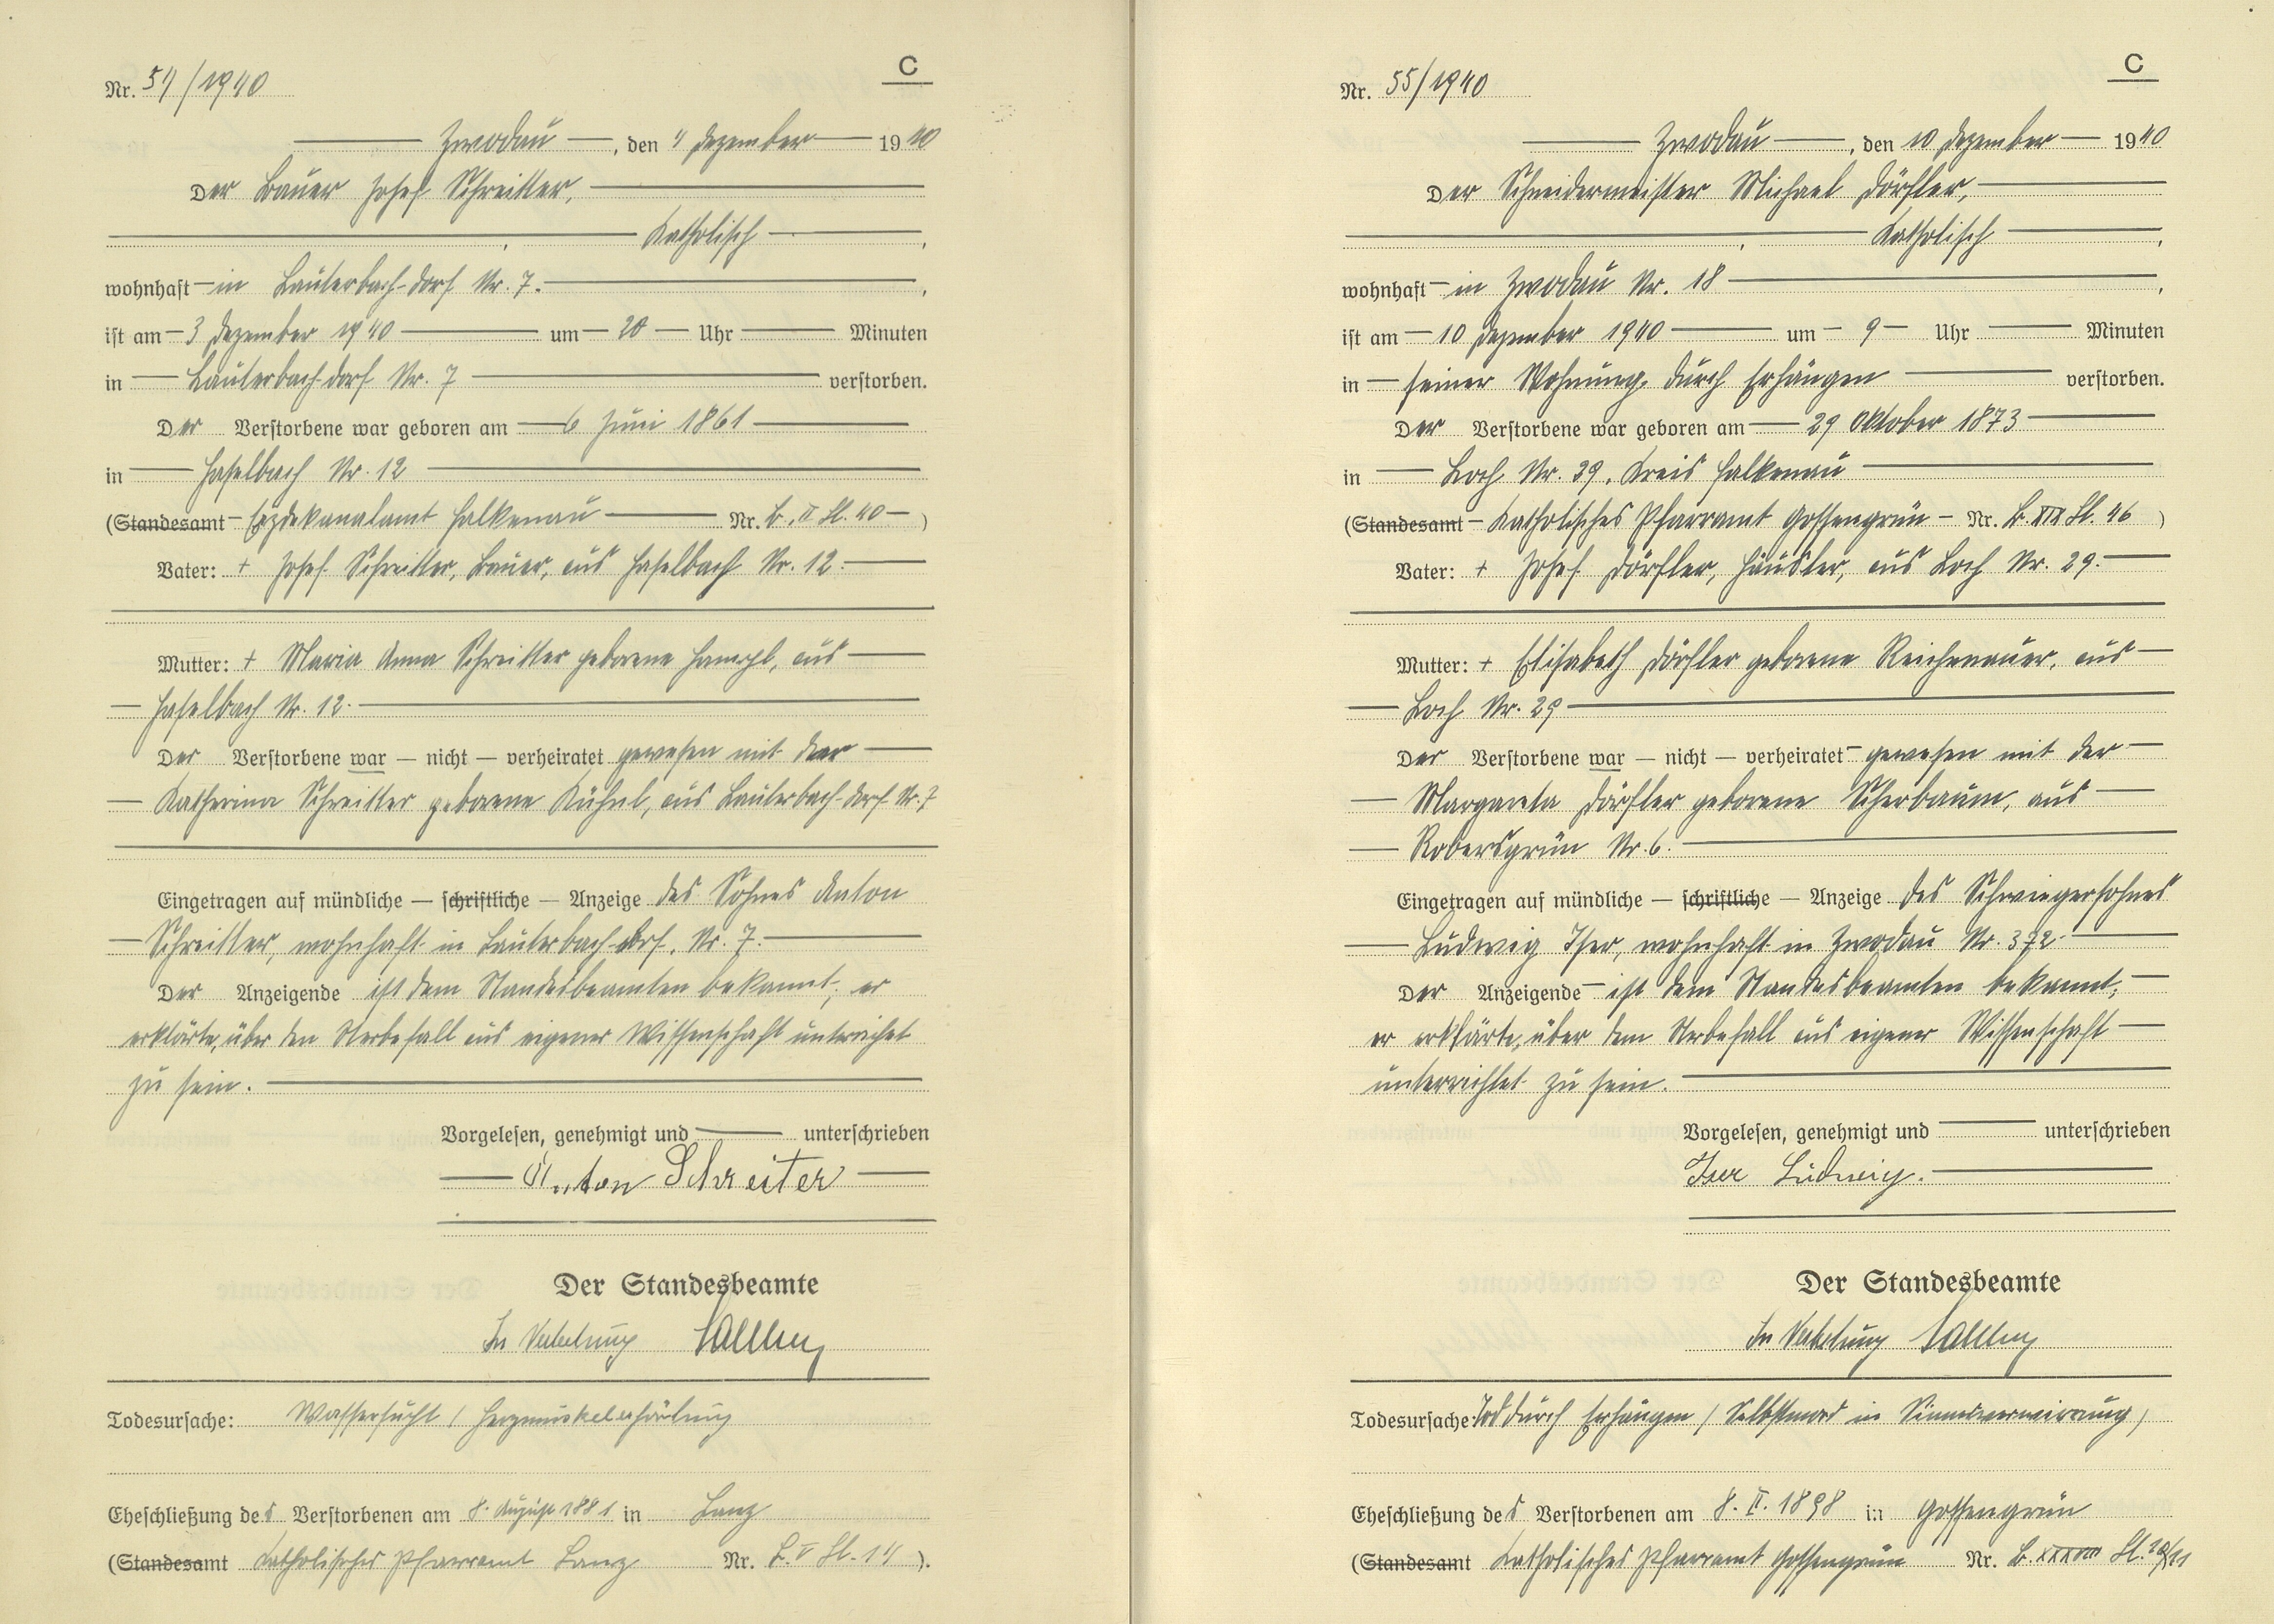 C
Nr. 54/1940
Zwodau, den 4 Dezember 1940
Der Bauer Josef Schreitter,
, Katholisch,
wohnhaft in Lauterbach-dorf Nr. 7.,
ist am 3 Dezember 1940 um 20 Uhr Minuten
in Lauterbach-dorf Nr. 7 verstorben.
Der Verstorbene war geboren am 6 Juni 1861
in Haselbach Nr. 12
(Standesamt Erzdekanalamt Falkenau Nr. B. II Bl. 40)
Vater: + Josef Schreitter, Bauer, aus Haselbach Nr. 12.
Mutter: + Maria Anna Schreitter geborene, aus
Haselbach Nr. 12.
Der Verstorbene war — nicht — verheiratet gewesen mit der
Katharina Schreitter geborene Kühnl, aus Lauterbach-dorf Nr. 7
Eingetragen auf mündliche — schriftliche — Anzeige des Sohnes Anton
Schreitter, wohnhaft in Lauterbach-dorf, Nr. 7.
Der Anzeigende ist dem Standesbeamten bekannt, er
erklärte, über den Sterbefall aus eigener Wissenschaft unterrichet
zu sein.
Vorgelesen, genehmigt und unterschrieben
Anton Schreiter
Der Standesbeamte
In Vertretung
Todesursache: Wassersucht / Herzmuskelerhärtung
Eheschließung des Verstorbenen am 8. August 1881 in Lanz
(Standesamt Katholisches Pfarramt Lanz Nr. B. V Bl. 14).
C
Nr. 55/1940
Zwodau, den 10 Dezember 1940
Der Schneidermeister Michael Dörfler,
, Katholisch,
wohnhaft in Zwodau Nr. 18,
ist am 10 Dezember 1940 um 9 Uhr Minuten
in seiner Wohnung, durch Erhängen verstorben.
Der Verstorbene war geboren am 29 Oktober 1873
in Loch Nr. 29, Kreis Falkenau
(Standesamt Katholisches Pfarramt Gossengrün Nr. B. Bl. 46)
Vater: + Josef Dörfler, Häusler, aus Loch Nr. 29.
Mutter: + Elisabeth Dörfler geborene Reichenauer, aus
Loch Nr. 29
Der Verstorbene war — nicht — verheiratet gewesen mit der
Margareta Dörfler geborene Scherbaum, aus
Robersgrün Nr. 6.
Eingetragen auf mündliche — schriftliche — Anzeige des Schwiegersohnes
Ludwig Iser, wohnhaft in Zwodau Nr. 372.
Der Anzeigende ist dem Standesbeamten bekannt,
er erklärte, über dem Sterbefall aus eigener Wissenschaft
unterrichtet zu sein.
Vorgelesen, genehmigt und unterschrieben
Iser Ludwig.
Der Standesbeamte
In Vertretung
Todesursache: Tod durch Erhängen / Selbstmord in Sinnesverwirrung /
Eheschließung des Verstorbenen am 8. II. 1898 in Gossengrün
(Standesamt Katholisches Pfarramt Gossengrün Nr. B. Bl.